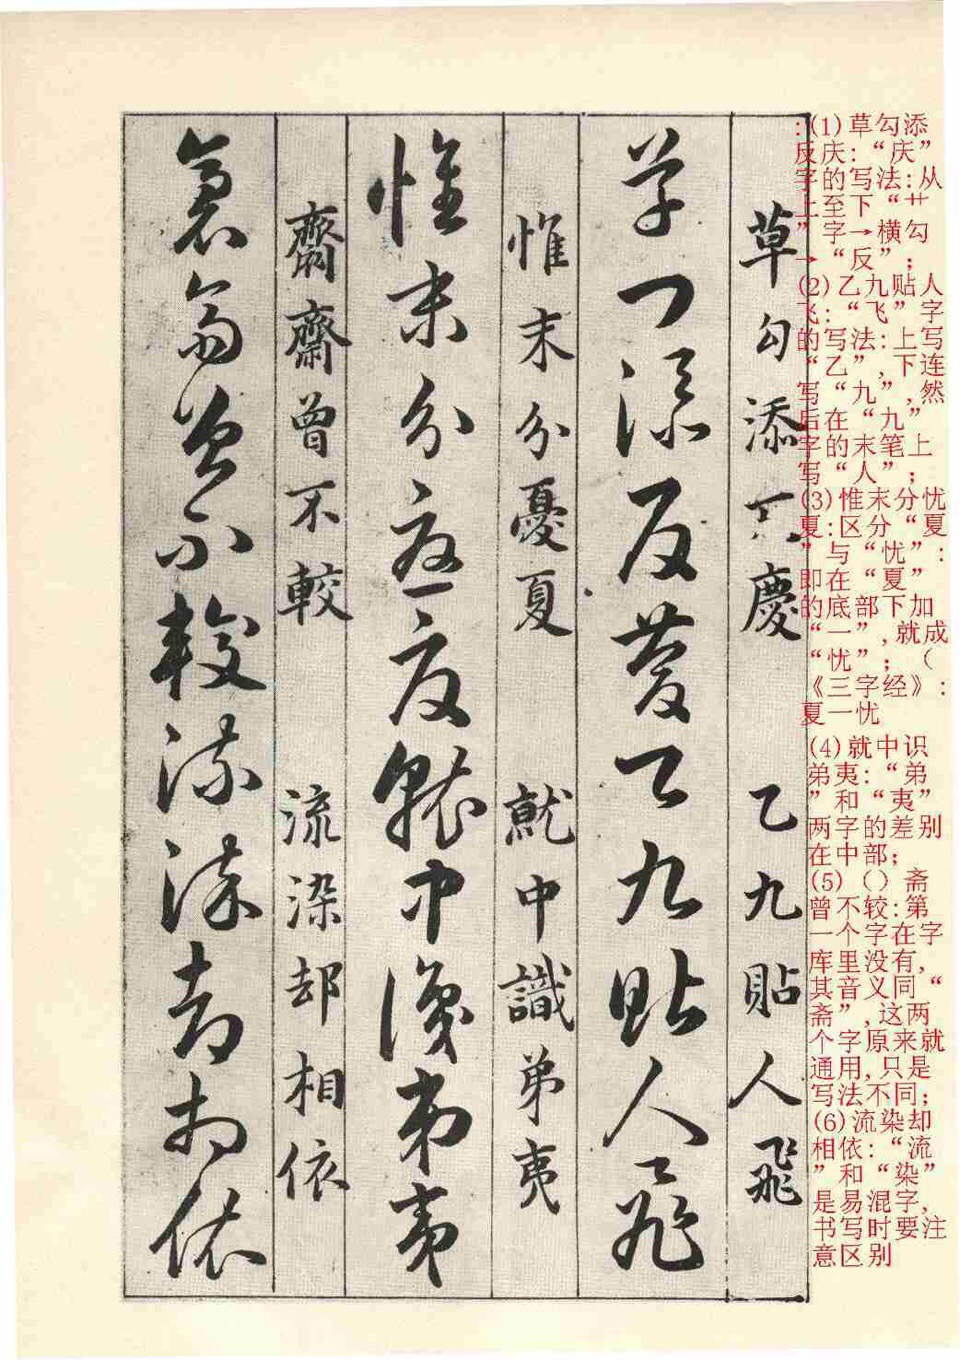 :(1)草勾添
反庆:“庆”
字的写法:从
上至下“艹
”字→横勾
→“反”;
(2)乙九贴人
飞:“飞”字
的写法:上写
“乙”,下连
写“九”,然
后在“九”
字的末笔上
写“人”;
(3)惟末分忧
夏:区分“夏
”与“忧”:
即在“夏”
的底部下加
“一”,就成
“忧”;(
《三字经》:
夏一忧
(4)就中识
弟夷:“弟
”和“夷”
两字的差别
在中部;
(5)（）斋
曾不较:第
一个字在字
库里没有,
其音义同“
斋”,这两
个字原来就
通用,只是
写法不同;
(6)流染却
相依:“流
”和“染”
是易混字,
书写时要注
意区别
草勾添慶 乙九貼人飛
草勾添反慶乙九貼人飛
惟末分憂夏 就中識弟夷
惟末分憂夏就中識弟夷
齋曾不較 流染却相依
齋曾不較流染却相依